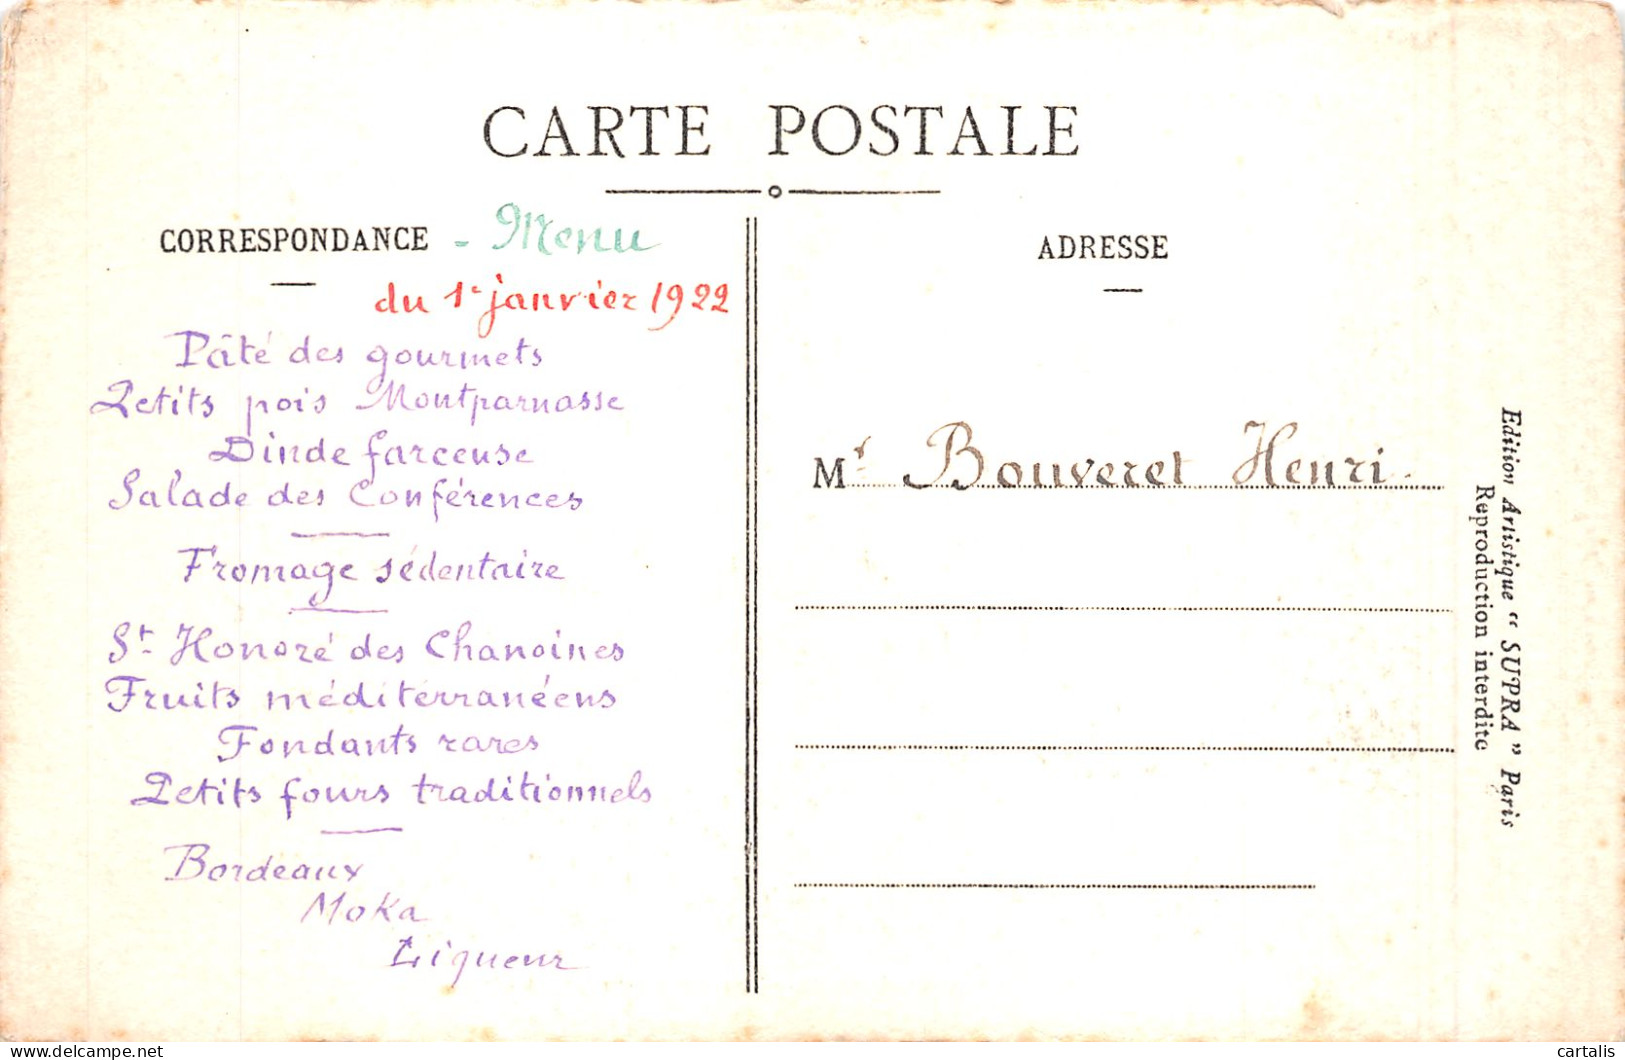 CARTE POSTALE
CORRESPONDANCE - Menu
du 1er janvier 1922
Pâté des gourmets
Petits pois Montparnasse
Dinde farceuse
Salade des Conférences
Fromage sédentaire
St Honoré des Chanoines
Fruits méditerranéens
Fondants rares
Petits fours traditionnels
Bordeaux
Moka
Liqueur
ADRESSE
Mr Bouveret Henri.
Edition Artistique "SUPRA" Paris
Reproduction interdite
delcampe.net
cartalis